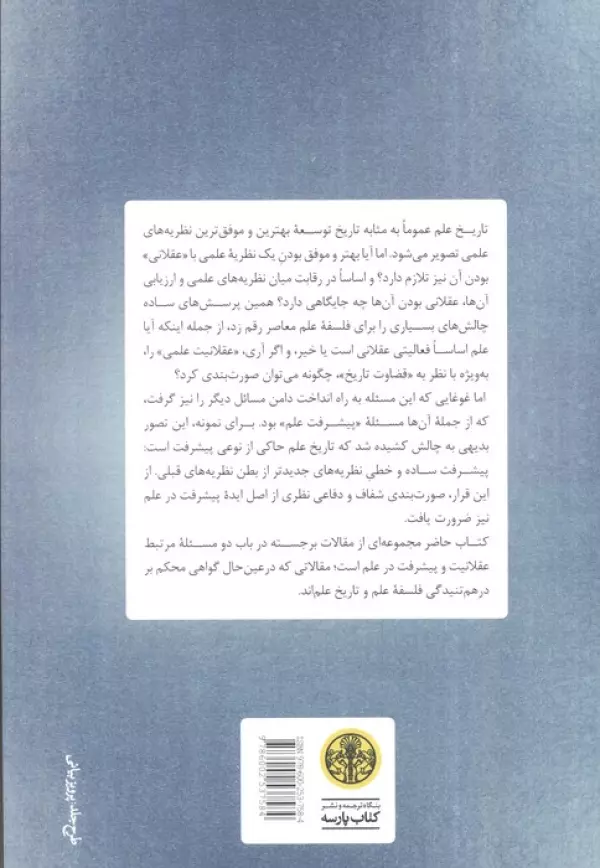 تاریخ علم عموماً به مثابه تاریخ توسعهٔ بهترین و موفق‌ترین نظریه‌های
علمی تصویر می‌شود. اما آیا بهتر و موفق بودنِ یک نظریهٔ علمی با «عقلانی»
بودن آن نیز تلازم دارد؟ و اساساً در رقابت میان نظریه‌های علمی و ارزیابی
آن‌ها، عقلانی بودن آن‌ها چه جایگاهی دارد؟ همین پرسش‌های ساده
چالش‌های بسیاری را برای فلسفهٔ علم معاصر رقم زد، از جمله اینکه آیا
علم اساساً فعالیتی عقلانی است یا خیر، و اگر آری، «عقلانیت علمی» را،
به‌ویژه با نظر به «قضاوت تاریخ»، چگونه می‌توان صورت‌بندی کرد؟
اما غوغایی که این مسئله به راه انداخت دامن مسائل دیگر را نیز گرفت،
که از جملهٔ آن‌ها مسئلهٔ «پیشرفت علم» بود. برای نمونه، این تصور
بدیهی به چالش کشیده شد که تاریخ علم حاکی از نوعی پیشرفت است:
پیشرفت ساده و خطیِ نظریه‌های جدیدتر از بطن نظریه‌های قبلی. از
این قرار، صورت‌بندی شفاف و دفاعی نظری از اصل ایدهٔ پیشرفت در علم
نیز ضرورت یافت.
کتاب حاضر مجموعه‌ای از مقالات برجسته در باب دو مسئلهٔ مرتبط
عقلانیت و پیشرفت در علم است؛ مقالاتی که درعین‌حال گواهی محکم بر
درهم‌تنیدگی فلسفهٔ علم و تاریخ علم‌اند.
ISBN 978-600-253-758-4
9786002537584
بنگاه ترجمه و نشر
کتاب پارسه
طرح جلد: پرویز بیانی